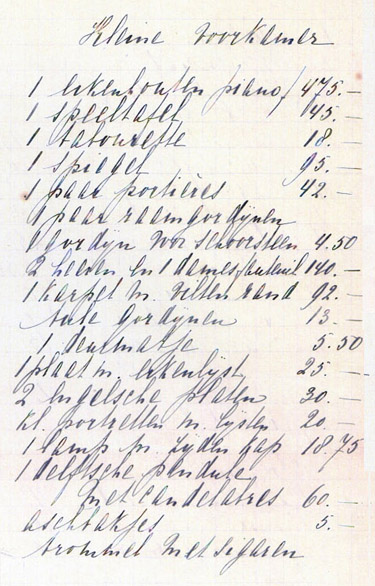 Kleine voorkamer
1 eikenhouten piano / 475.—
1 speeltafel 45.—
1 tabourette 18.—
1 spiegel 95.—
1 paar portières 42.—
1 paar raamgordijnen
1 gordijn voor schoorsteen 4.50
2 heeren en 1 damesfauteuil 140.—
1 karpet m. vilten rand 92.—
tule gordijnen 13.—
1 deurmatje 5.50
1 plaat m. eikenlijst 25.—
2 Engelsche platen 30.—
kl. portretten m. lijsten 20.—
1 lamp m. zijden kap 18.75
1 delftsche pendule
met candelabres 60.—
aschbakjes 5.—
trommel met sigaren